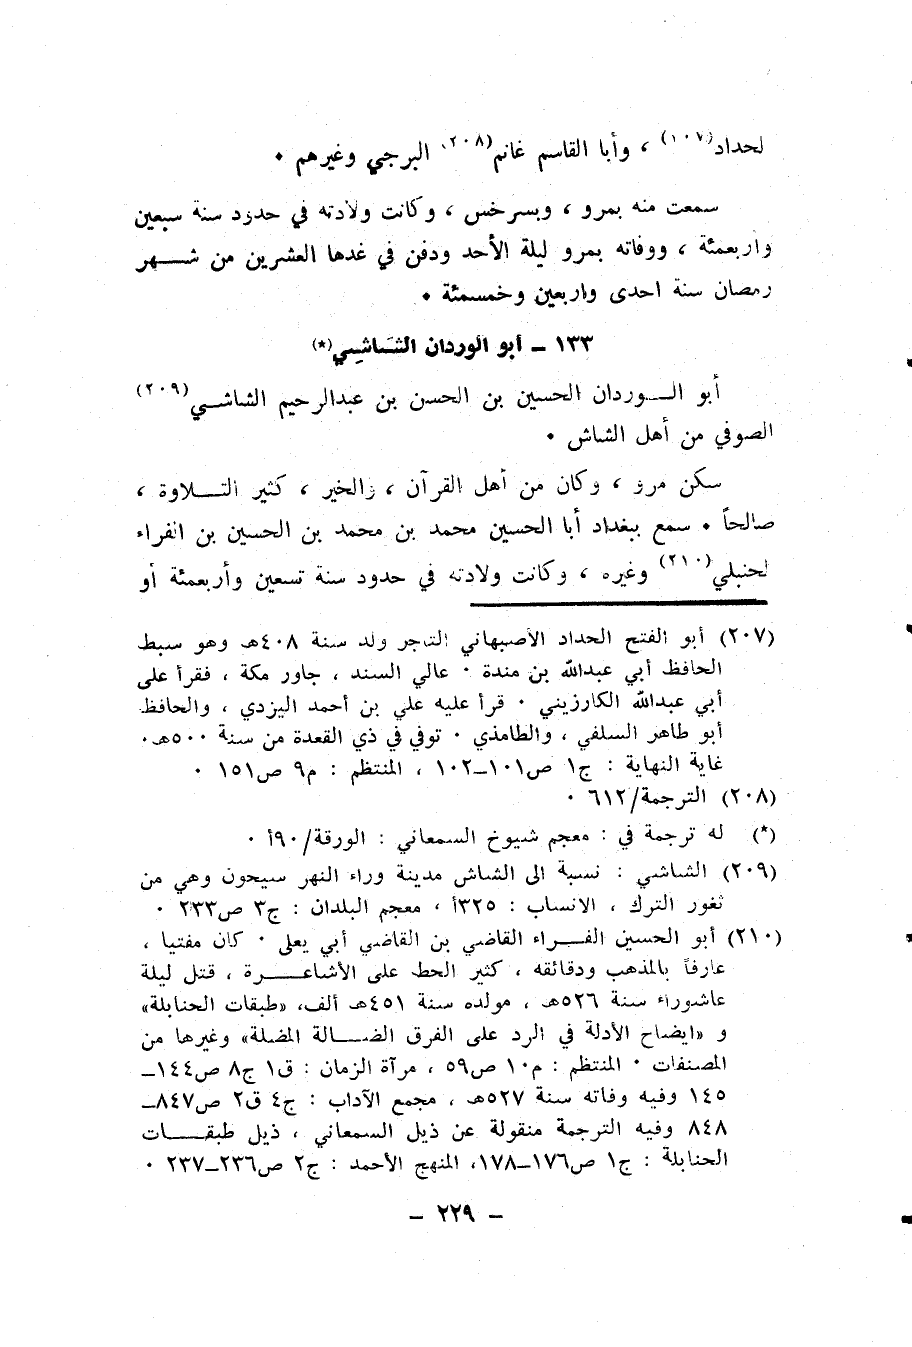 لحداد(١٠٧) ، وأبا القاسم غانم(٢٠٨) البرجي وغيرهم ٠
سمعت منه بمرو ، وبسرخس ، وكانت ولادته في حدود سنة سبعين
واربعمئة ، ووفاته بمرو ليلة الأحد ودفن في غدها العشرين من شهر
رمضان سنة احدى واربعين وخمسمئة ٠
١٣٣ ــ أبو الوردان الشاشِي(*)
أبو الوردان الحسين بن الحسن بن عبدالرحيم الشاشي(٢٠٩)
الصوفي من أهل الشاش ٠
سكن مرو ، وكان من أهل القرآن ، والخير ، كثير التلاوة ،
صالحاً ٠ سمع ببغداد أبا الحسين محمد بن محمد بن الحسين بن الفراء
لحنبلي(٢١٠) وغيره ، وكانت ولادته في حدود سنة تسعين وأربعمئة أو
(٢٠٧) أبو الفتح الحداد الأصبهاني التاجر ولد سنة ٤٠٨هـ وهو سبط
الحافظ أبي عبدالله بن مندة ٠ عالي السند ، جاور مكة ، فقرأ على
أبي عبدالله الكارزيني ٠ قرأ عليه علي بن أحمد اليزدي ، والحافظ
أبو طاهر السلفي ، والطامذي ٠ توفي في ذي القعدة من سنة ٥٠٠هـ٠
غاية النهاية : ج١ ص١٠١ــ١٠٢ ، المنتظم : م٩ ص١٥١ ٠
(٢٠٨) الترجمة/٦١٢ ٠
(*) له ترجمة في : معجم شيوخ السمعاني : الورقة/٩٠أ ٠
(٢٠٩) الشاشي : نسبة الى الشاش مدينة وراء النهر سيحون وهي من
ثغور الترك ، الانساب : ٣٢٥أ ، معجم البلدان : ج٣ ص٢٣٣ ٠
(٢١٠) أبو الحسين الفراء القاضي بن القاضي أبي يعلى ٠ كان مفتيا ،
عارفاً بالمذهب ودقائقه ، كثير الحط على الأشاعرة ، قتل ليلة
عاشوراء سنة ٥٢٦هـ ، مولده سنة ٤٥١هـ ألف، «طبقات الحنابلة»
و «ايضاح الأدلة في الرد على الفرق الضالة المضلة» وغيرها من
المصنفات ٠ المنتظم : م١٠ ص٥٩ ، مرآة الزمان : ق١ ج٨ ص١٤٤ــ
١٤٥ وفيه وفاته سنة ٥٢٧هـ ، مجمع الآداب : ج٤ ق٢ ص٨٤٧ــ
٨٤٨ وفيه الترجمة منقولة عن ذيل السمعاني ، ذيل طبقات
الحنابلة : ج١ ص١٧٦ــ١٧٨، المنهج الأحمد : ج٢ ص٢٣٦ــ٢٣٧ ٠
ــ ٢٢٩ ــ